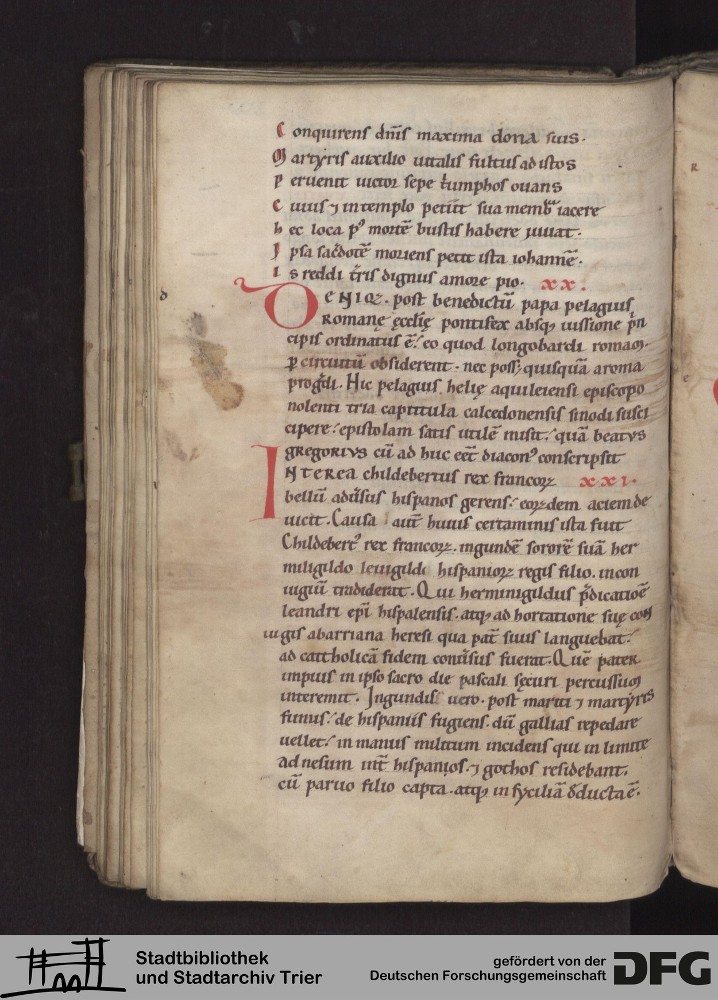 Conquirens dn̄s maxima dona suis.
Martyris auxilio uitalis fultus ad istos
Peruenit uictor sepe t͛umphos ouans
Cuius ⁊ in templo petiit sua memb͛a iacere
hec loca pꝰ mortē bustis habere iuuat.
Ipsa sac͛dotē moriens petit ista iohannē.
Is reddi t͛ris dignus amore pio. xx.
DENIQꝫ. post benedictū papa pelagius
romanę ęcclię pontifex absqꝫ iussione p͛n
cipis ordinatus ē. eo quod longobardi romam.
ꝑ circuitū obsiderent. nec possꝫ quisquā aroma
prog͛di. Hic pelagius helię aquileiensi episcopo
nolenti tria captitula calcedonensis sinodi susci
cipere. epistolam satis utilē misit. quā beatus
gregorius cū ad huc eēt diaconꝰ conscripsit
INTEREA childebertus rex francoꝝ xxi.
bellū adu͛sus hispanos gerens. eoꝝdem aciem de
uicit. Causa aut̄ huius certaminis ista fuit
Childebertꝰ rex francoꝝ. ingundē sororē suā her
miligildo leuigildi hispanioꝝ regis filio. in con
iugiū tradiderat. Qui herminigildus p͛dicatiōe
leandri ep̄i hispalensis. atqꝫ ad hortatione suę con
iugis abarriana heresi qua pat̄ suus languebat.
ad cattholicā fidem conu͛sus fuerat. Quē pater
impius in ipso sacro die pascali sęcuri percussum
interemit. Ingundis uero. post mariti ⁊ martyris
funus. de hispaniis fugiens. dū gallias repedare
uellet. in manus militum incidens qui in limite
ad nesum int̄ hispanos. ⁊ gothos residebant.
cū paruo filio capta. atqꝫ in sycilia deducta ē.
Stadtbibliothek
und Stadtarchiv Trier
gefördert von der
Deutschen Forschungsgemeinschaft
DFG